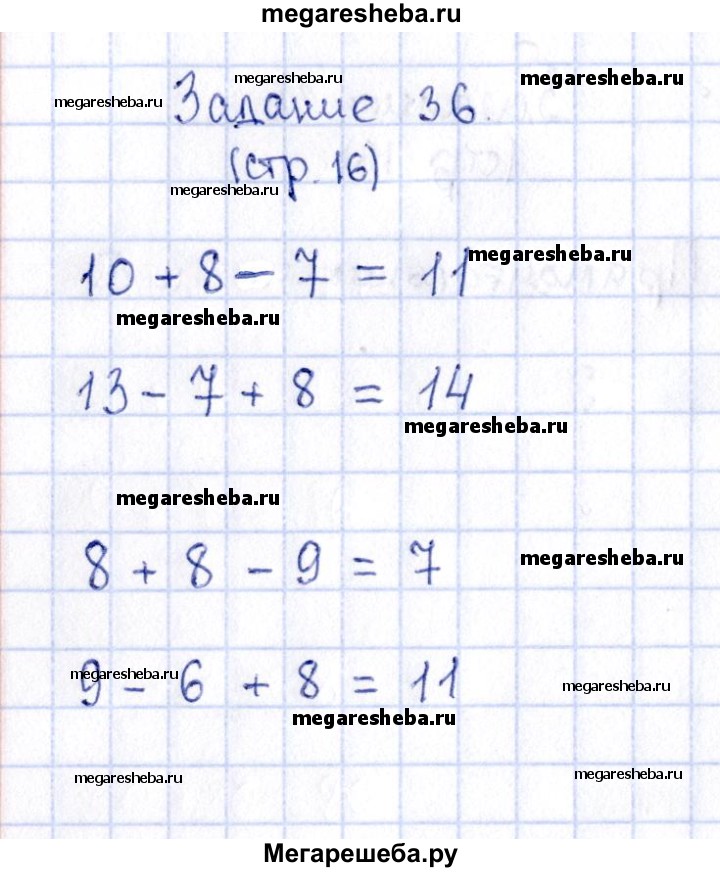 megaresheba.ru
megaresheba.ru
megaresheba.ru
megaresheba.ru
Задание 36.
(стр. 16)
megaresheba.ru
10 + 8 - 7 = 11
megaresheba.ru
megaresheba.ru
13 - 7 + 8 = 14
megaresheba.ru
megaresheba.ru
8 + 8 - 9 = 7
megaresheba.ru
megaresheba.ru
9 - 6 + 8 = 11
megaresheba.ru
megaresheba.ru
megaresheba.ru
megaresheba.ru
Мегарешеба.ру